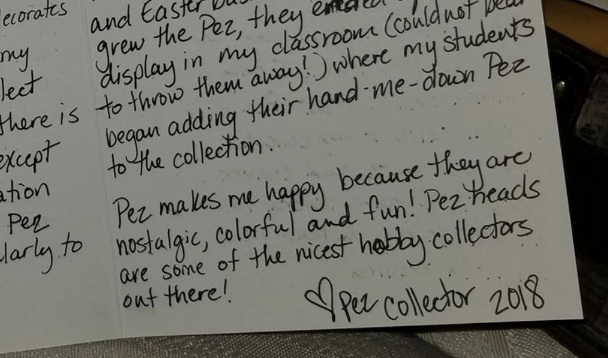 ecorates
my
lect
there is
except
ation
Pez
larly to
and Easter
grew the Pez, they ended
display in my classroom (could not bear
to throw them away!) where my students
began adding their hand-me-down Pez
to the collection.
Pez makes me happy because they are
nostalgic, colorful and fun! Pez heads
are some of the nicest hobby collectors
out there!
♡ Pez Collector 2018